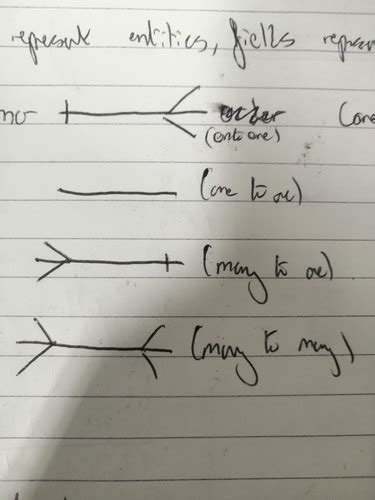 represent entities, fields represen
order (one
(onto one)
(one to oe)
(many to oe)
(many to many)